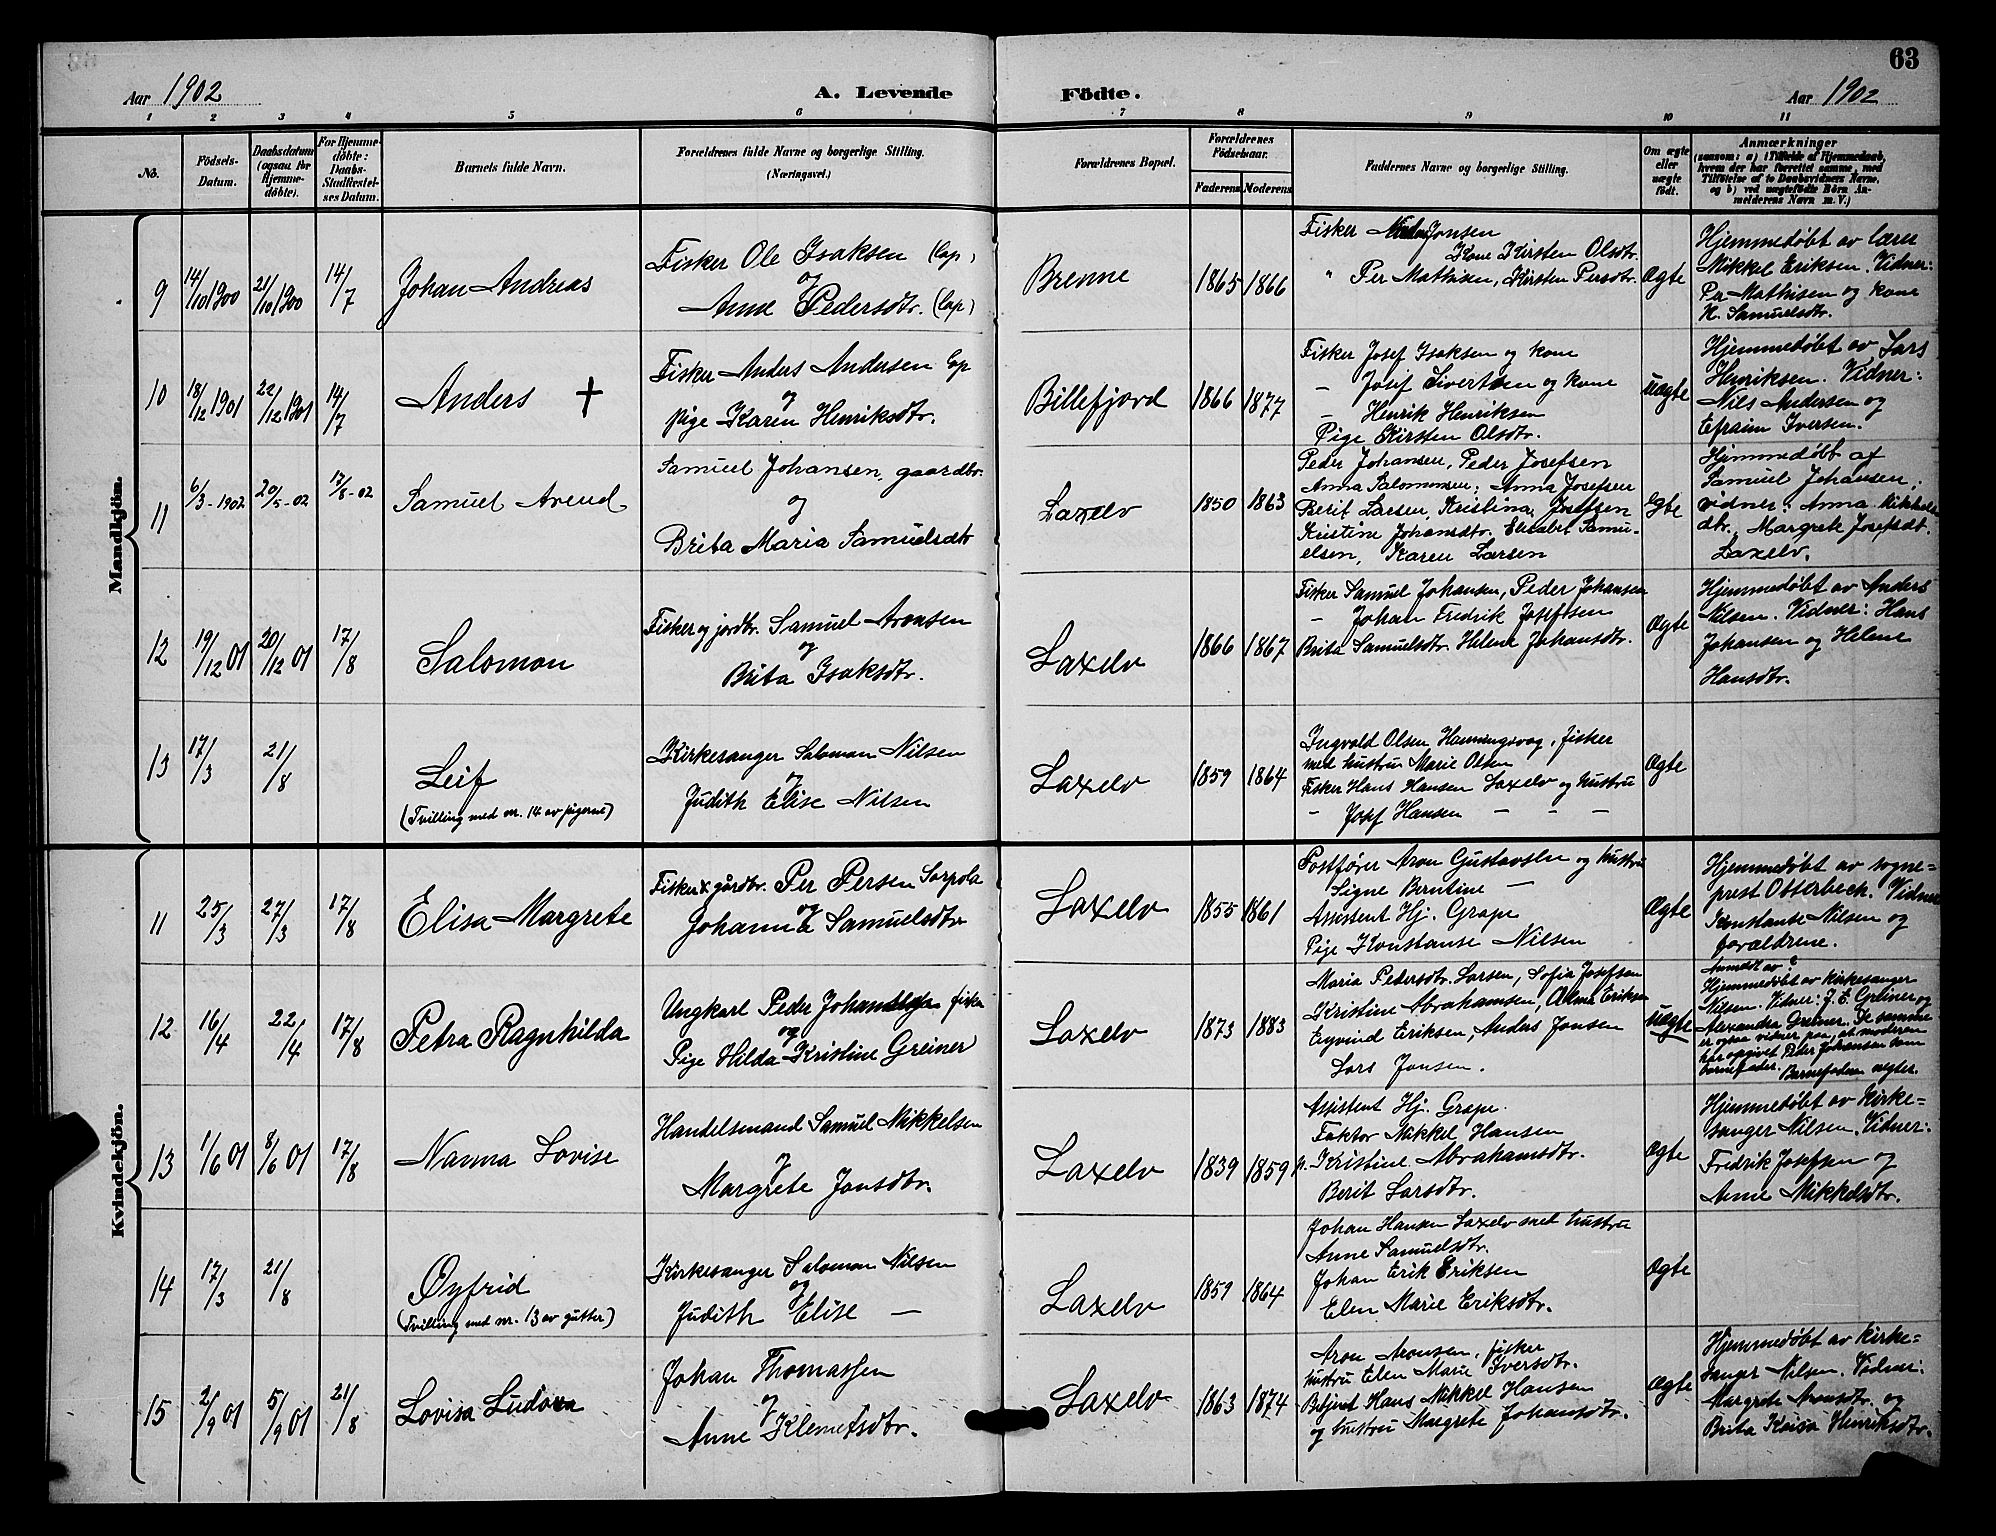 63
Aar 1902
A. Levende
Födte.
Aar 1902
1 2 3 4 5 6 7 8 9 10 11
No.
Födsels-
Datum.
Daabsdatum
(ogsaa for
Hjemme-
döbte).
For Hjemme-
döbte:
Daabs-
Stadfæstel-
ses Datum.
Barnets fulde Navn.
Forældrenes fulde Navne og borgerlige Stilling.
(Næringsvei.)
Forældrenes Bopæl.
Forældrenes
Födselsaar.
Faderens
Moderens
Faddernes Navne og borgerlige Stilling.
Om ægte
eller
uægte
födt.
Anmærkninger
(saasom: a) i Tilfælde af Hjemmedaab,
hvem der har forrettet samme, med
Tilföielse af to Daabsvidners Navne,
og b) ved uægtefödte Börn An-
melderens Navn m. V.)
Mandkjön.
9
14/10 1900
21/10 1900
14/7
Johan Andreas
Fisker Ole Isaksen (lap)
og
Anne Pedersdtr. (lap)
Brenne
1865
1866
Fisker Jonsen
Kone Kirsten Olsdtr.
" Per Mathisen, Kirsten Persdtr.
Ægte
Hjemmedøbt av lærer
Mikkel Eriksen. Vidner:
Per Mathisen og kone
K. Samuelsdtr.
10
18/12 1901
22/12 1901
14/7
Anders +
Fisker Anders Andersen lap
og
pige Karen Henriksdtr.
Billefjord
1866
1877
Fisker Josef Isaksen og kone
– Josef Sivertsen og kone
– Henrik Henriksen
Pige Kirsten Olsdtr.
uægte
Hjemmedøbt av Lars
Henriksen. Vidner:
Nils Andersen og
Efraim Iversen.
11
6/3-1902
20/5-02
17/8-02
Samuel Arend
Samuel Johansen, gaardbr.
og
Brita Maria Samuelsdtr
Laxelv
1850
1863
Peder Johansen, Peder Josefsen
Anna Salomonsen, Anna Josefsen
Berit Larsen, Kristina Josefsen
Kristine Johansdtr. Elisabet Samu-
elsen, Karen Larsen
Egte
Hjemmedøbt af
Samuel Johansen,
vidner: Anna Mikkels
dtr., Margrete Josefsdt.
Laxelv.
12
19/12 01
20/12 01
17/8
Salomon
Fisker og jordbr. Samuel Aronsen
og
Brita Isaksdtr.
Laxelv
1866
1867
Fisker Samuel Johansen, Peder Johansen
– Johan Fredrik Josefsen
Brita Samuelsdtr. Helene Johansdtr.
Ægte
Hjemmedøbt av Anders
Nilsen. Vidner: Hans
Johansen og Helene
Hansdtr.
13
17/3
21/8
Leif
(Tvilling med nr. 14 av pigerne)
Kirkesanger Salomon Nilsen
og
Judith Elise Nilsen
Laxelv
1859
1864
Ingvald Olsen Honningsvag, fisker
med hustru Marie Olsen
Fisker Hans Hansen Laxelv og hustru
– Josef Hansen – – –
Ægte
Kvindekjön.
11
25/3
27/3
17/8
Elisa Margrete
Fisker & gårdbr. Per Persen Sarpola
og
Johanne Samuelsdtr
Laxelv
1855
1861
Postfører Aron Gustavsen og hustru
Signe Berntine –
Assistent Hj. Grape
Pige Konstanse Nilsen
Ægte
Hjemmedøbt av sogne-
prest Otterbech. Vidner
Konstanse Nilsen og
forældrene.
12
16/4
22/4
17/8
Petra Ragnhilda
Ungkarl Peder Johansen fisker
og
Pige Hilda Kristine Greiner
Laxelv
1873
1883
Maria Pedersdtr. Larsen, Sofia Josefsen
Kristine Abrahamsen, Eriksen
Eyvind Eriksen, Anders Jonsen
Lars Jonsen.
uægte
Anmeldt av
Hjemmedøbt av kirkesanger
Nilsen. Vidner: J. E. Greiner og
Alexandra Greiner. De samme
er ogsaa vidner paa, at moderen
har opgivet Peder Johansen som
barnefader. Barnefaderen nægter.
13
1/6 01
8/6 01
17/8
Nanna Lovise
Handelsmand Samuel Mikkelsen
og
Margrete Jonsdtr.
Laxelv
1839
1859
Assistent Hj. Grape.
Faktor Mikkel Hansen
p. Kristine Abrahamsdtr.
Berit Larsdtr.
Ægte
Hjemmedøbt av Kirke-
sanger Nilsen. Vidner:
Fredrik Josefsen og
Anne Mikkelsdtr.
14
17/3
21/8
Øyfrid
(Tvilling med nr. 13 av gutter)
Kirkesanger Salomon Nilsen
og
Judith Elise –
Laxelv
1859
1864
Johan Hansen Laxelv med hustru
Anne Samuelsdtr.
Johan Erik Eriksen
Elen Marie Eriksdtr.
Ægte
15
2/9 01
5/9 01
21/8
Lovisa Ludova
Johan Thomassen
og
Anne Klemetsdtr.
Laxelv
1863
1874
Aron Aronsen, fisker
hustru Elen Marie Iversdtr.
Betjent Hans Mikkel Hansen
og hustru Margrete Johansdtr.
Ægte
Hjemmedøbt av kirke-
sanger Nilsen. Vidner:
Margrete Aronsdtr. og
Brita Kaisa Henriksdtr.